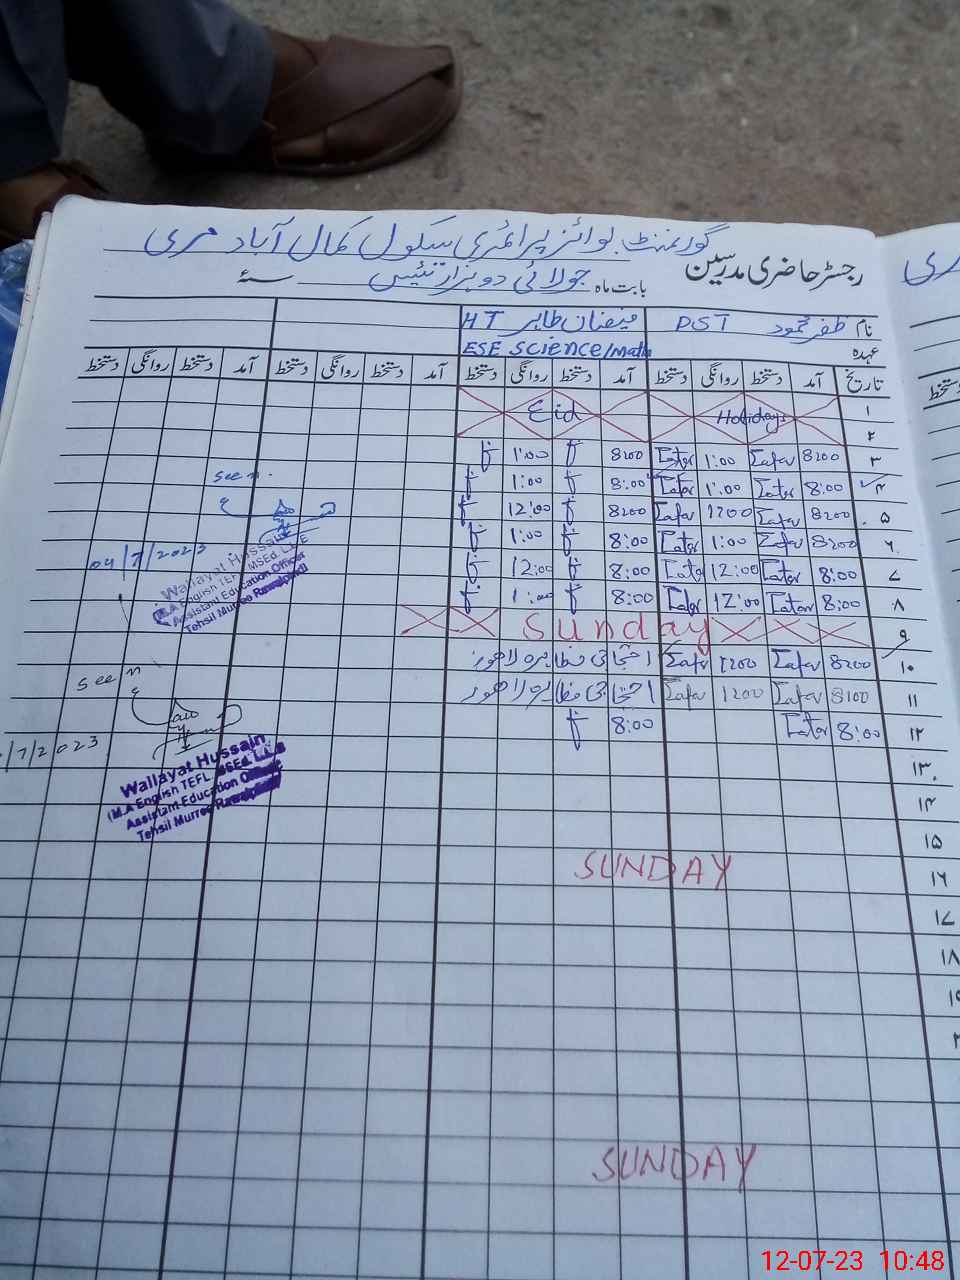 گورنمنٹ بوائز پرائمری سکول کمال آباد مری
رجسٹر حاضری مدرسین
بابت ماہ جولائی دو ہزار تئیس سنہ
نام ظفر محمود PST فیضان طاہر HT
عہدہ ESE Science/Math
تاریخ آمد دستخط روانگی دستخط آمد دستخط روانگی دستخط آمد دستخط روانگی دستخط آمد دستخط روانگی دستخط
۱ Eid Holidays
۲
۳ 8:00 1:00 8:00 1:00
۴ 8:00 1:00 8:00 1:00
۵ 8:00 1200 8:00 12:00
۶ 8:00 1:00 8:00 1:00
۷ 8:00 12:00 8:00 12:00
۸ 8:00 12:00 8:00 1:00
۹ Sunday
۱۰ 8:00 1200 احتجاجی مظاہرہ لاہور
۱۱ 8:00 1200 احتجاجی مظاہرہ لاہور
۱۲ 8:00 8:00
۱۳
۱۴
۱۵
۱۶ SUNDAY
۱۷
۱۸
۱۹
SUNDAY
seen
04/7/2023
Wallayat Hussain
(M.A English TEFL, MSEd, L.L.B
Assistant Education Officer
Tehsil Murree Rawalpindi)
seen
/7/2023
Wallayat Hussain
(M.A English TEFL, MSEd, L.L.B
Assistant Education Officer
Tehsil Murree Rawalpindi)
دستخط
12-07-23 10:48